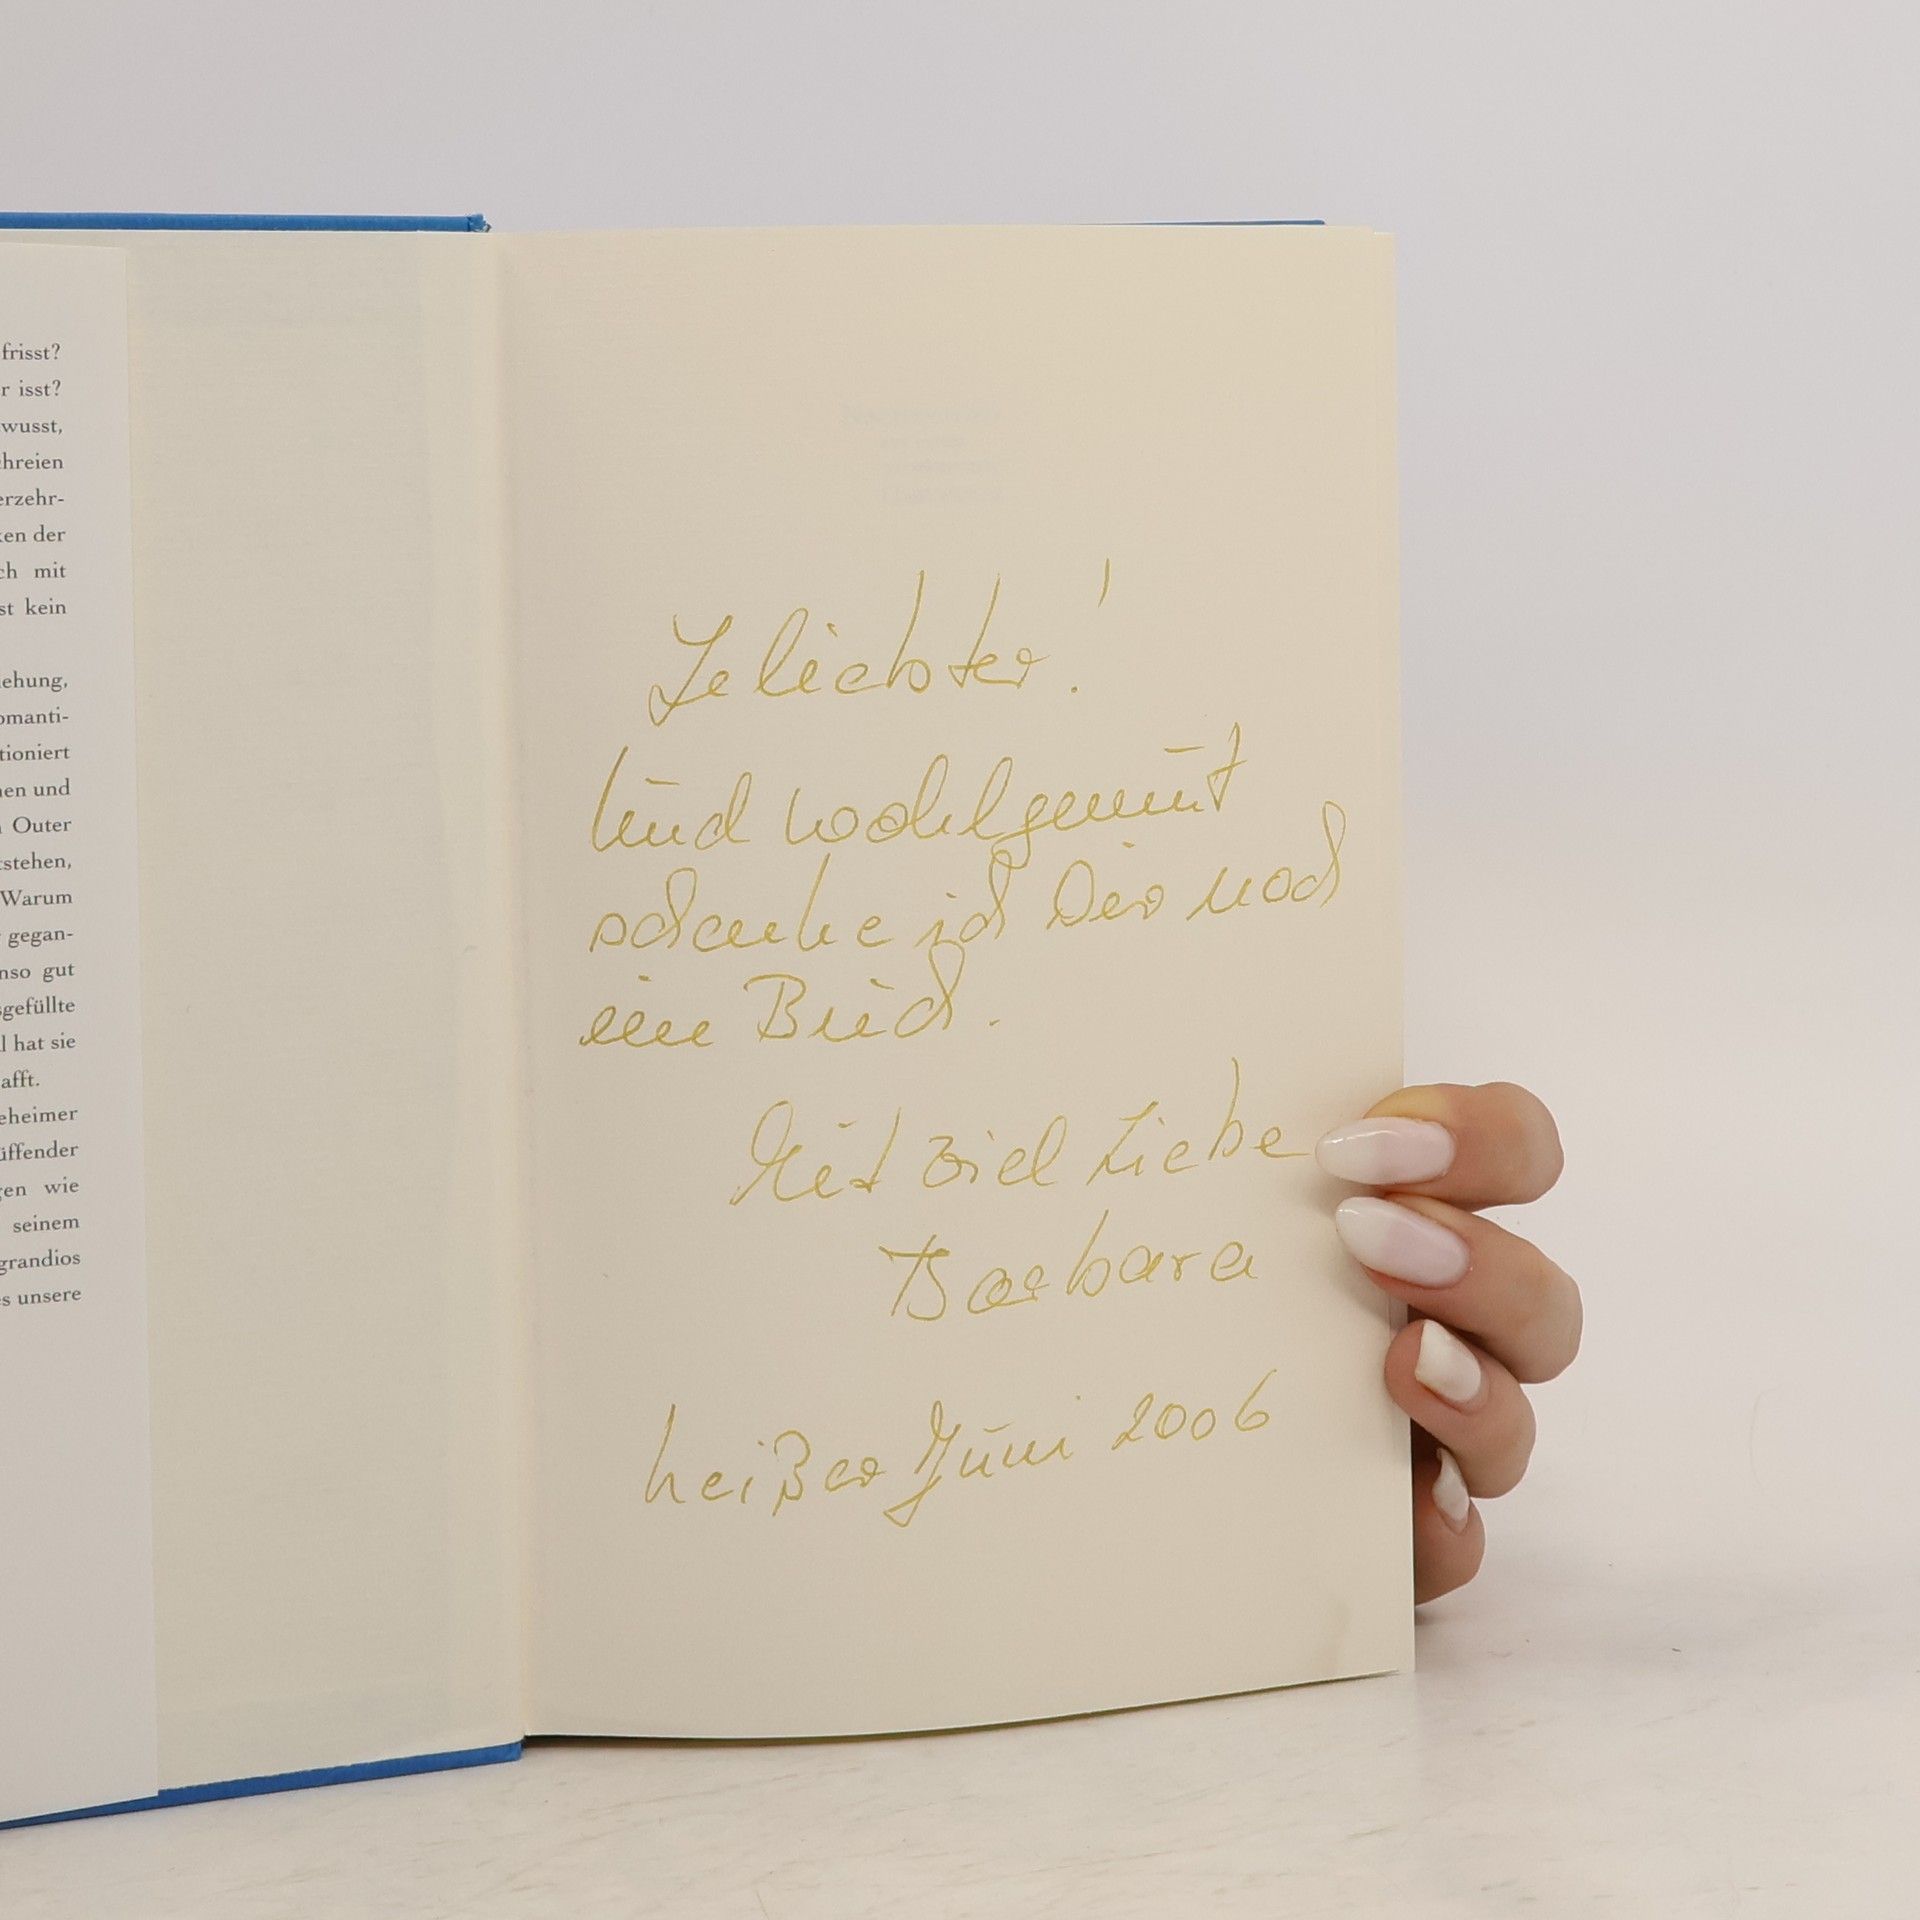 frisst?
r isst?
wusst,
hreien
erzehr-
ken der
ch mit
st kein
ehung,
omanti-
tioniert
nen und
Outer
stehen,
Warum
gegan-
nso gut
sgefüllte
l hat sie
afft.
eheimer
üffender
gen wie
seinem
grandios
s unsere
Geliebter!
Und wohlgemut
schenke ich Dir noch
ein Buch.
Mit viel Liebe
Barbara
heißer Juni 2006